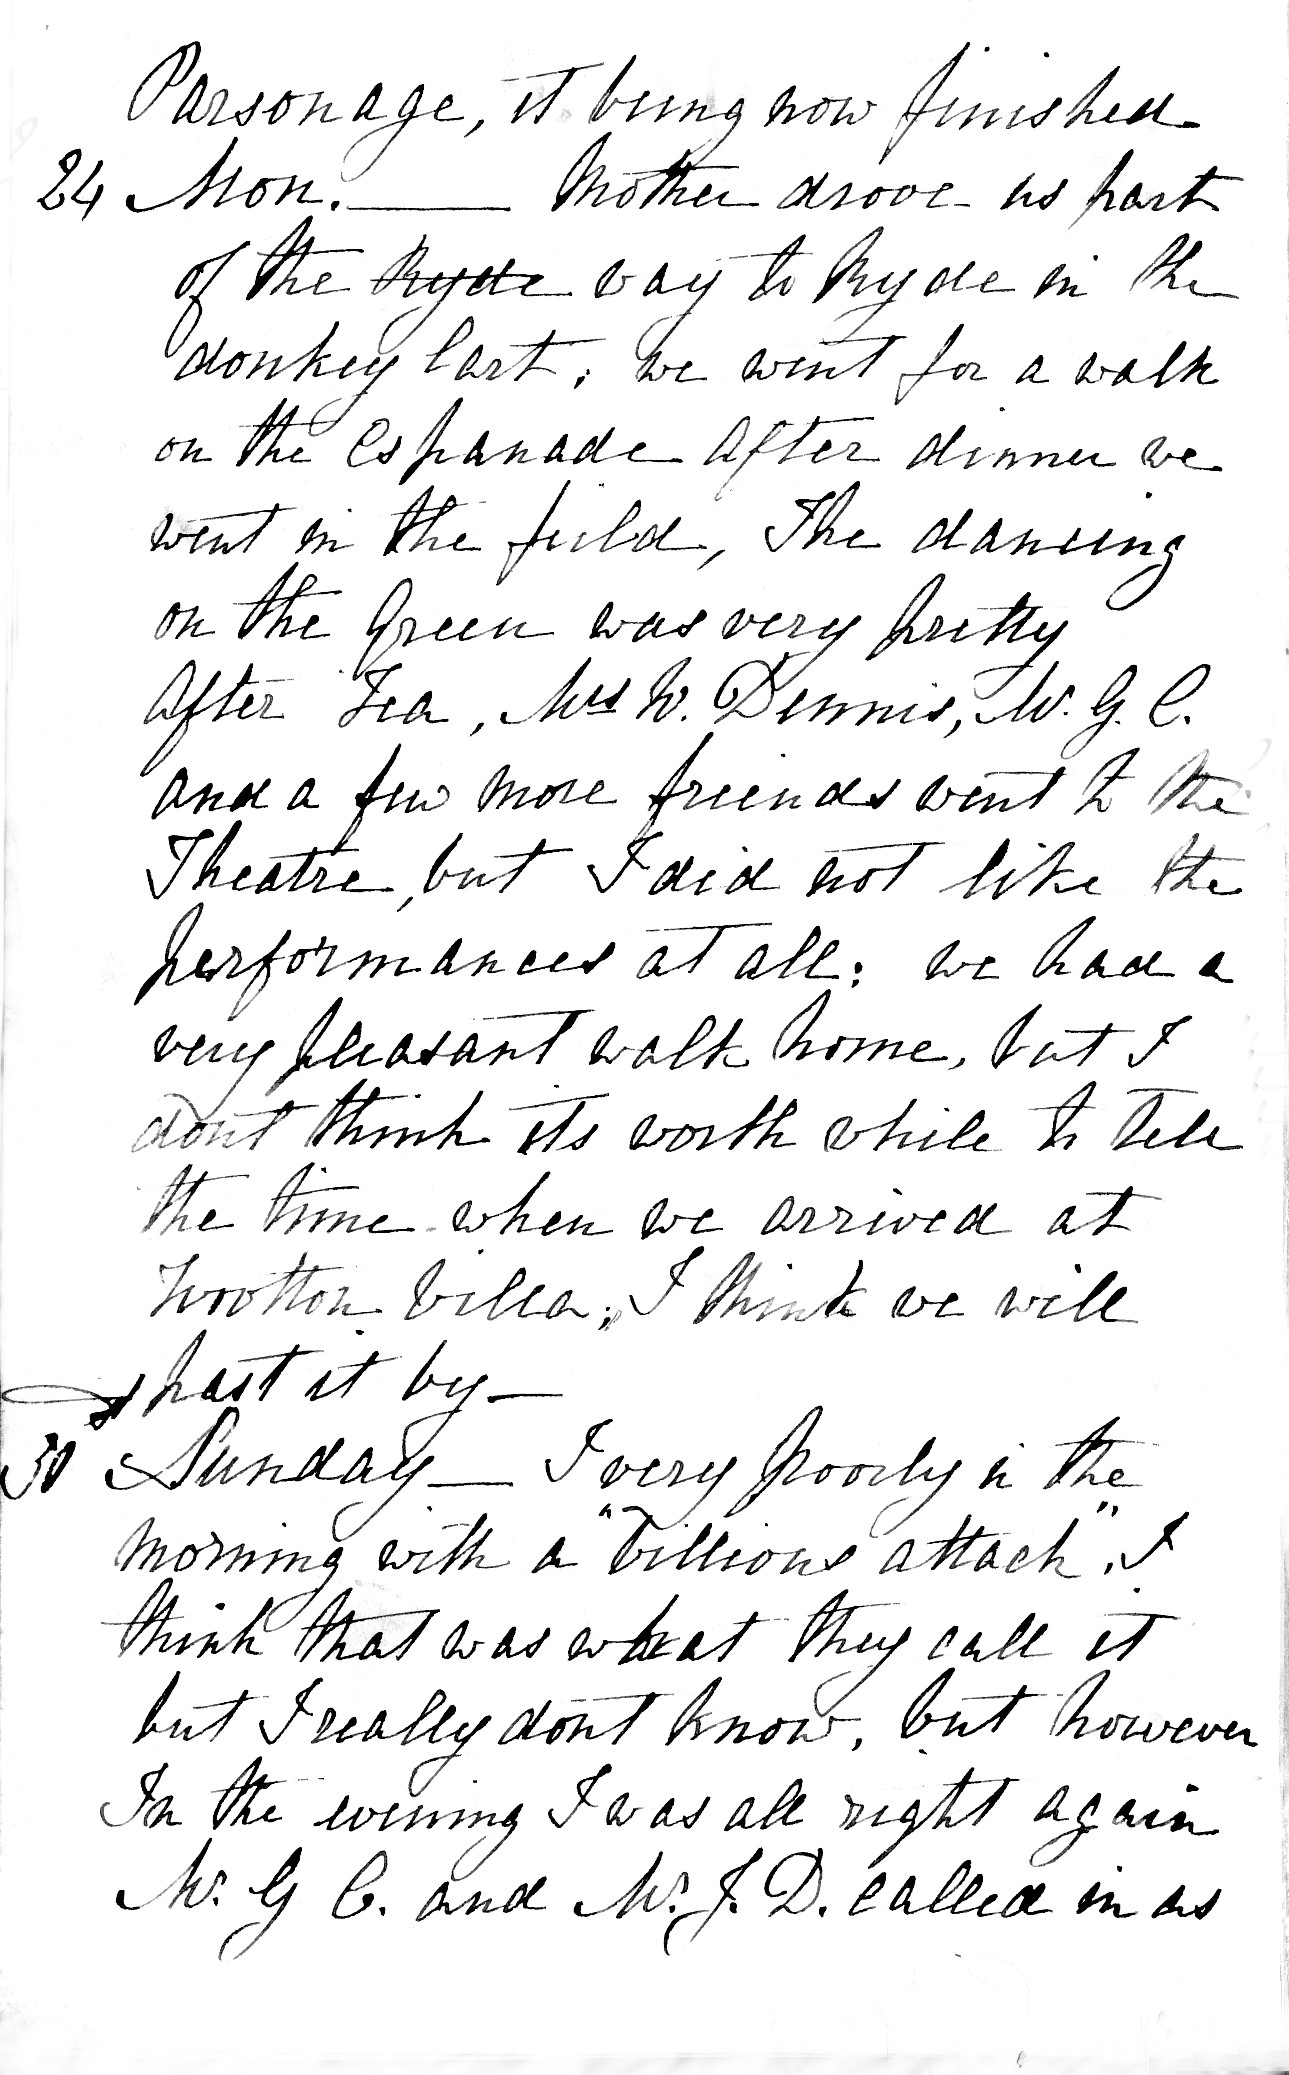 Parsonage, it being now finished
24 Mon. — Mother drove us part
of the Ryde way to Ryde in the
donkey Cart; we went for a walk
on the Espanade After dinner we
went in the field, The dancing
on the Green was very pretty
After Tea, Mrs W. Dennis, Mr. G. C.
and a few more friends went to the
Theatre, but I did not like the
performances at all: we had a
very pleasant walk home, but I
dont think its worth while to tell
the time when we arrived at
Wootton Villa; I think we will
past it by —
30 Sunday — I very poorly in the
morning with a "billions attack". I
think that was what they call it
but I really dont know, but however
In the evening I was all right again
Mr. G C. and Mr. J. D. called in as